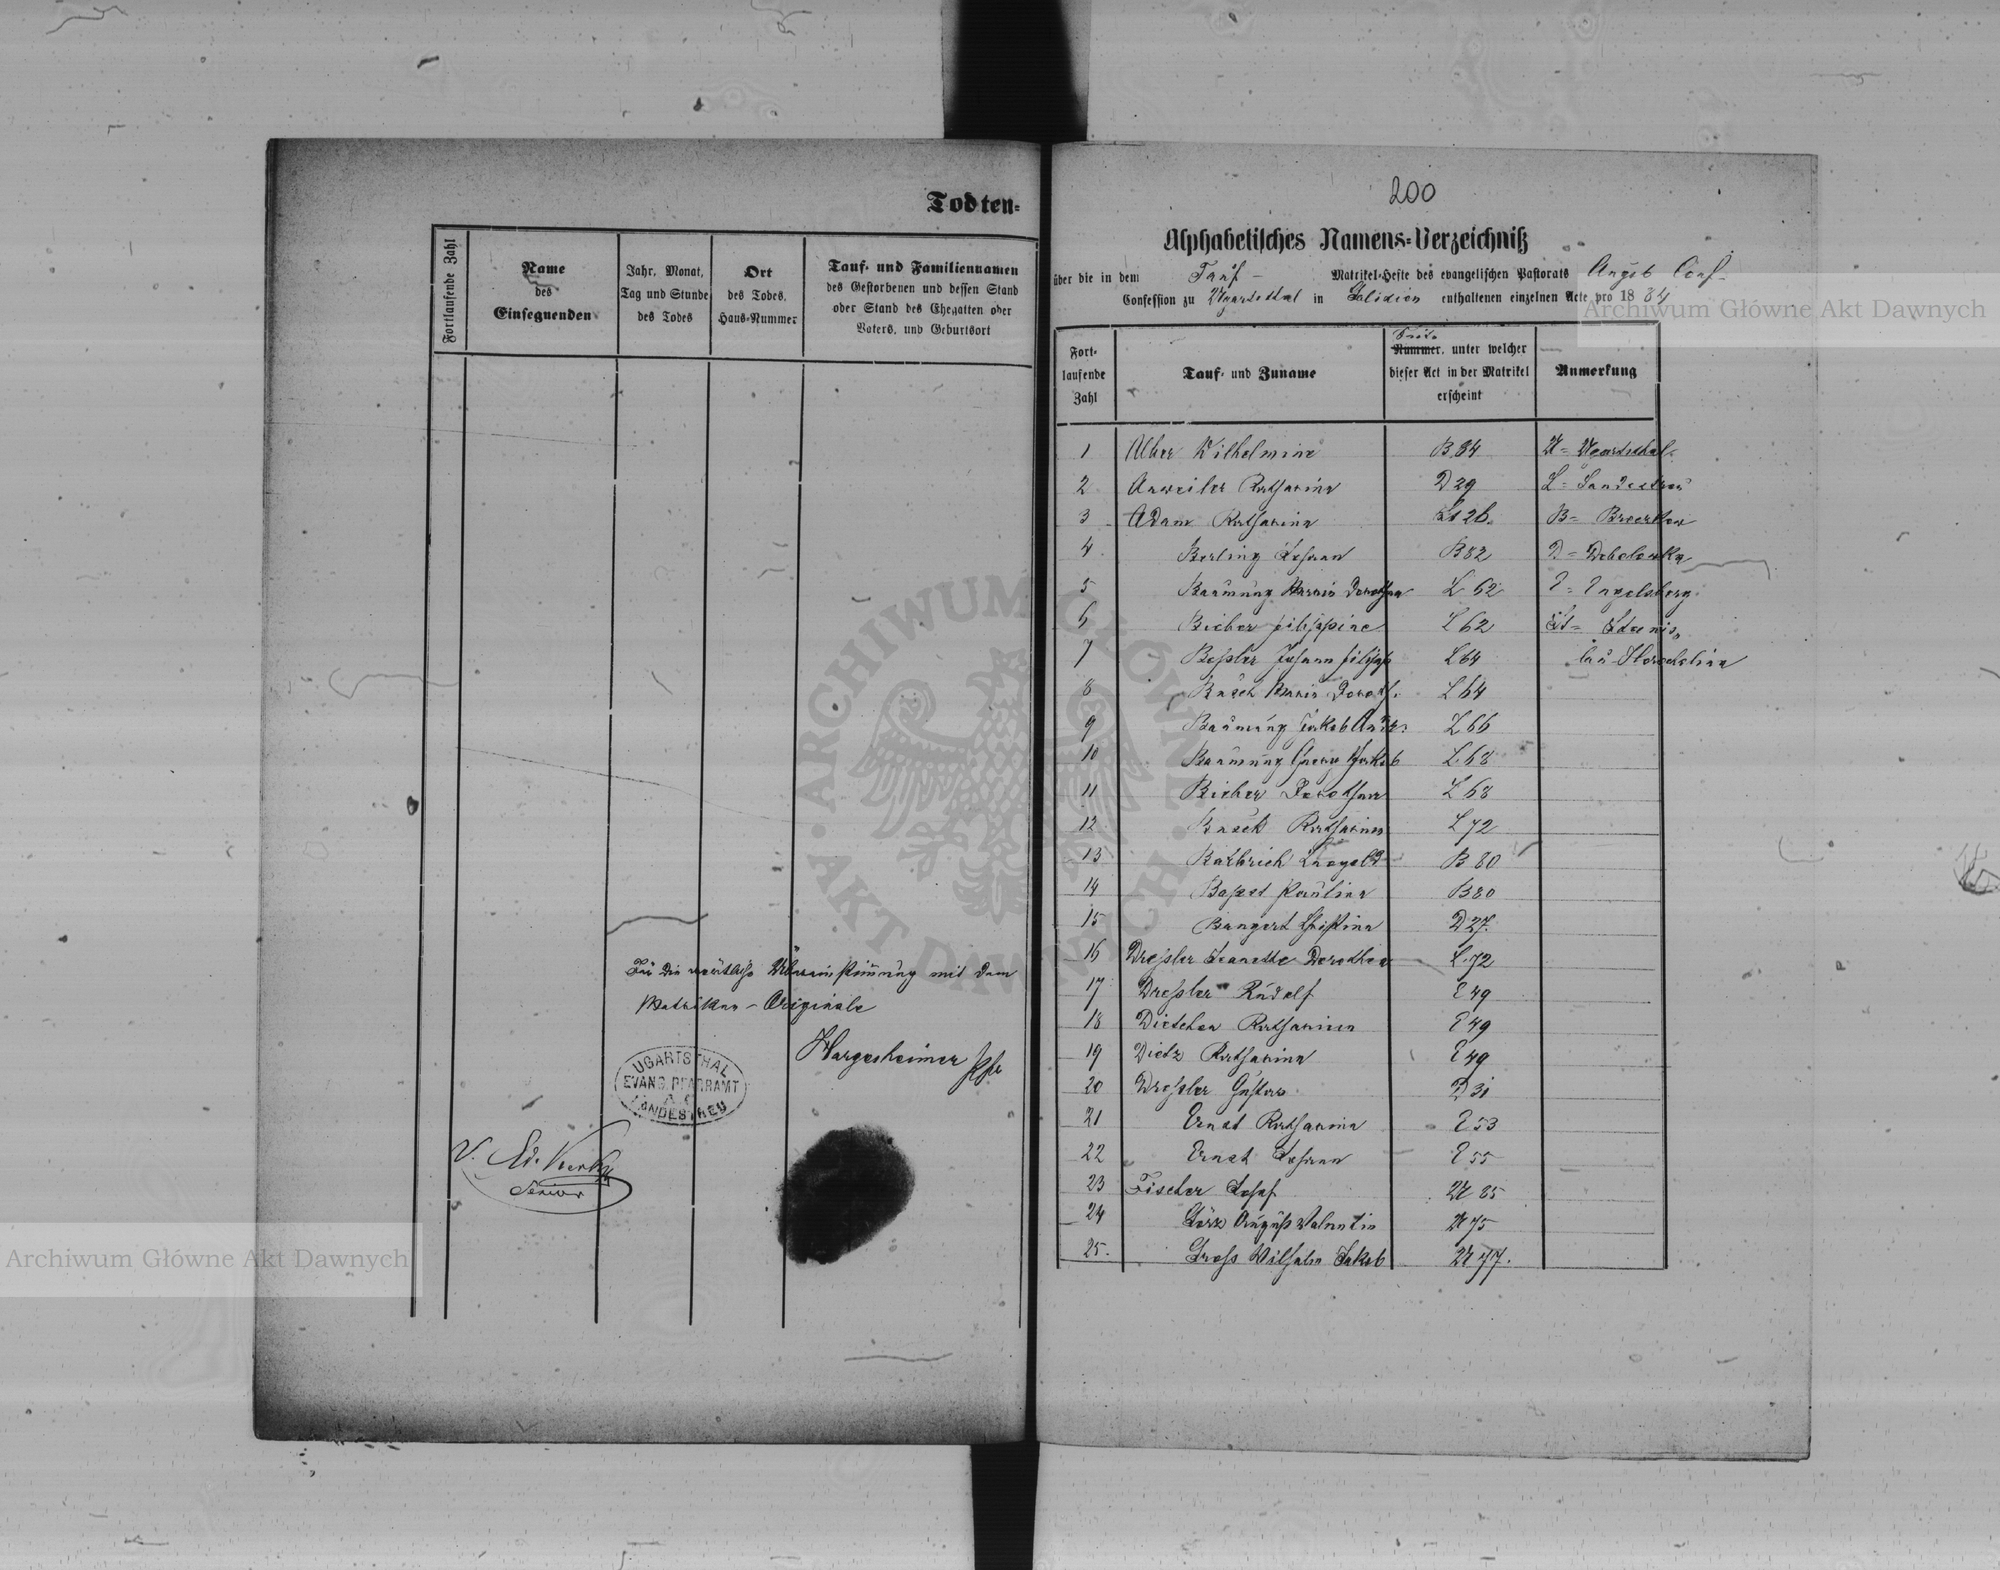 Todten=
Fortlaufende Zahl
Name
des
Einsegnenden
Jahr, Monat,
Tag und Stunde
des Todes
Ort
des Todes,
Haus=Nummer
Tauf= und Familiennamen
des Gestorbenen und dessen Stand
oder Stand des Ehegatten oder
Vaters, und Geburtsort
Für die wörtliche Übereinstimmung mit dem
Matriken-Originale
Hargesheimer
UGARTSTHAL
EVANG. PFARRAMT
A. C.
LANDESTREU
V. Ed.
Senior
200
Alphabetisches Namens=Verzeichniß
über die in dem Tauf- Matrikel=Hefte des evangelischen Pastorats Augsb Conf.
Confession zu Ugartsthal in Galizien enthaltenen einzelnen Acte pro 1884
Fort=
laufende
Zahl
Tauf= und Zuname
Seite
Nummer, unter welcher
dieser Act in der Matrikel
erscheint
Anmerkung
1 Alber Wilhelmine B 84 U = Ugartsthal
2 Anweiler Katharina D 29 L = Landestreu
3 Adam Katharina St 26. B =
4 Berling Johann B 82 D = Debelowka
5 Baumung Maria Dorothea L 62 E = Engelsberg
6 Bieber Filippine L 62 St = Stanis-
7 Bessler Johann Filipp L 64 lau
8 Busch Maria Doroth. L 64
9 Baumung Jakob Andr. L 66
10 Baumung Georg Jakob L 68
11 Bieber Dorothea L 68
12 Busch Katharina L 72
13 B 80
14 Paulina B 80
15 Bangert Christina D 27.
16 Dressler Jeanette Dorothea L 72
17 Dressler Rudolf E 49
18 Dietcher Katharina E 49
19 Dietz Katharina E 49
20 Dressler Gustav D 31
21 Ernst Katharina E 53
22 Ernst Johann E 55
23 Fischer Josef U 85
24 Görz August Valentin U 75
25. Gross Wilhelm Jakob U 77.
Archiwum Główne Akt Dawnych
Archiwum Główne Akt Dawnych
ARCHIWUM GŁÓWNE · AKT DAWNYCH ·